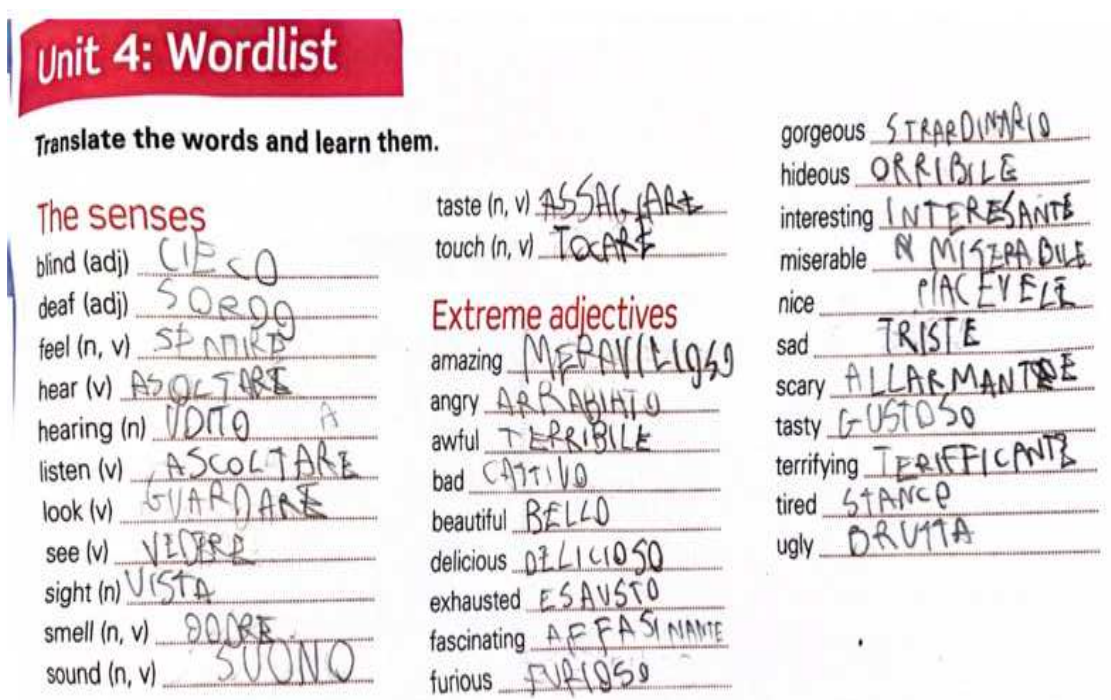 Unit 4: Wordlist
Translate the words and learn them.
The senses
blind (adj) CIECO
deaf (adj) SORDO
feel (n, v) SENTIRE
hear (v) ASOLTARE
hearing (n) UDITO A
listen (v) ASCOLTARE
look (v) GUARDARE
see (v) VEDERE
sight (n) VISTA
smell (n, v) ODORE
sound (n, v) SUONO
taste (n, v) ASSAGIARE
touch (n, v) TOCARE
Extreme adjectives
amazing MERAVILIOSO
angry ARRABIATO
awful TERRIBILE
bad CATTIVO
beautiful BELLO
delicious DELICIOSO
exhausted ESAUSTO
fascinating AFFASINANTE
furious FURIOSO
gorgeous STRARDINARIO
hideous ORRIBILE
interesting INTERESANTE
miserable MISERABILE
nice PIACEVELE
sad TRISTE
scary ALLARMANTE
tasty GUSTOSO
terrifying TERIFFICANTE
tired STANCO
ugly BRUTTA